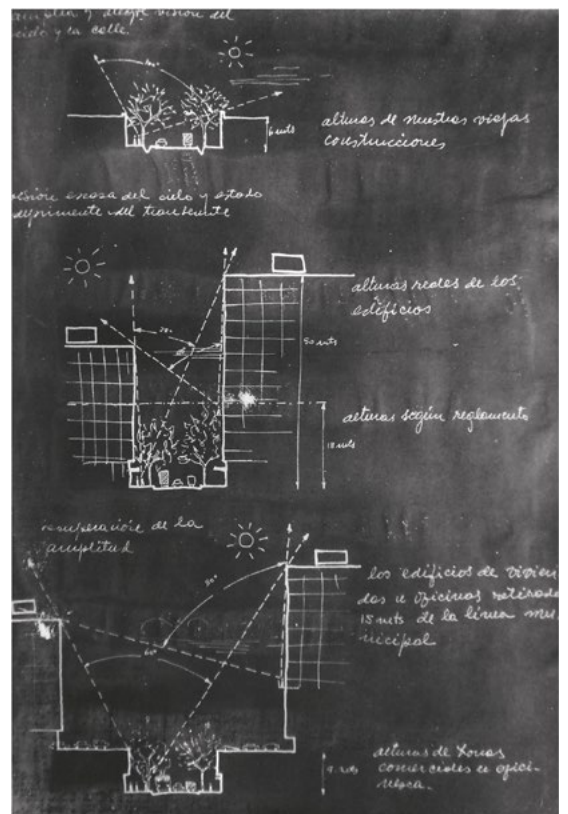 amplia y alegre visión del
cielo y la calle.
6 mts
alturas de nuestras viejas
construcciones
visión escasa del cielo y estado
deprimente del transeunte
alturas reales de los
edificios
50 mts
alturas según reglamento
18 mts
recuperación de la
amplitud
los edificios de vivien
das u oficinas retirados
15 mts de la línea mu
nicipal
alturas de zonas
comerciales u ofici-
nesca.
mts